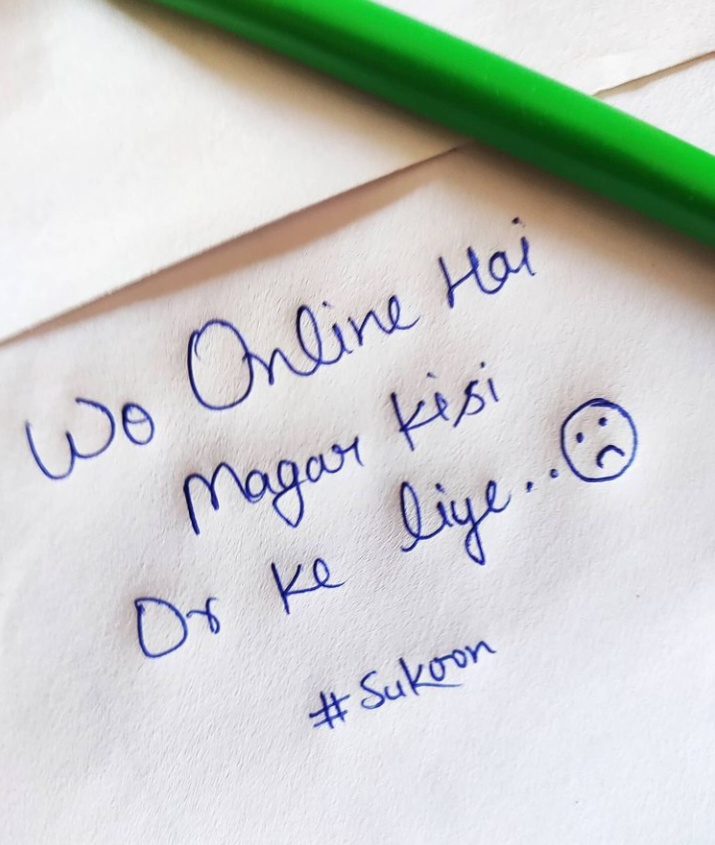 Wo Online Hai
Magar kisi
Or ke liye..☹
#Sukoon